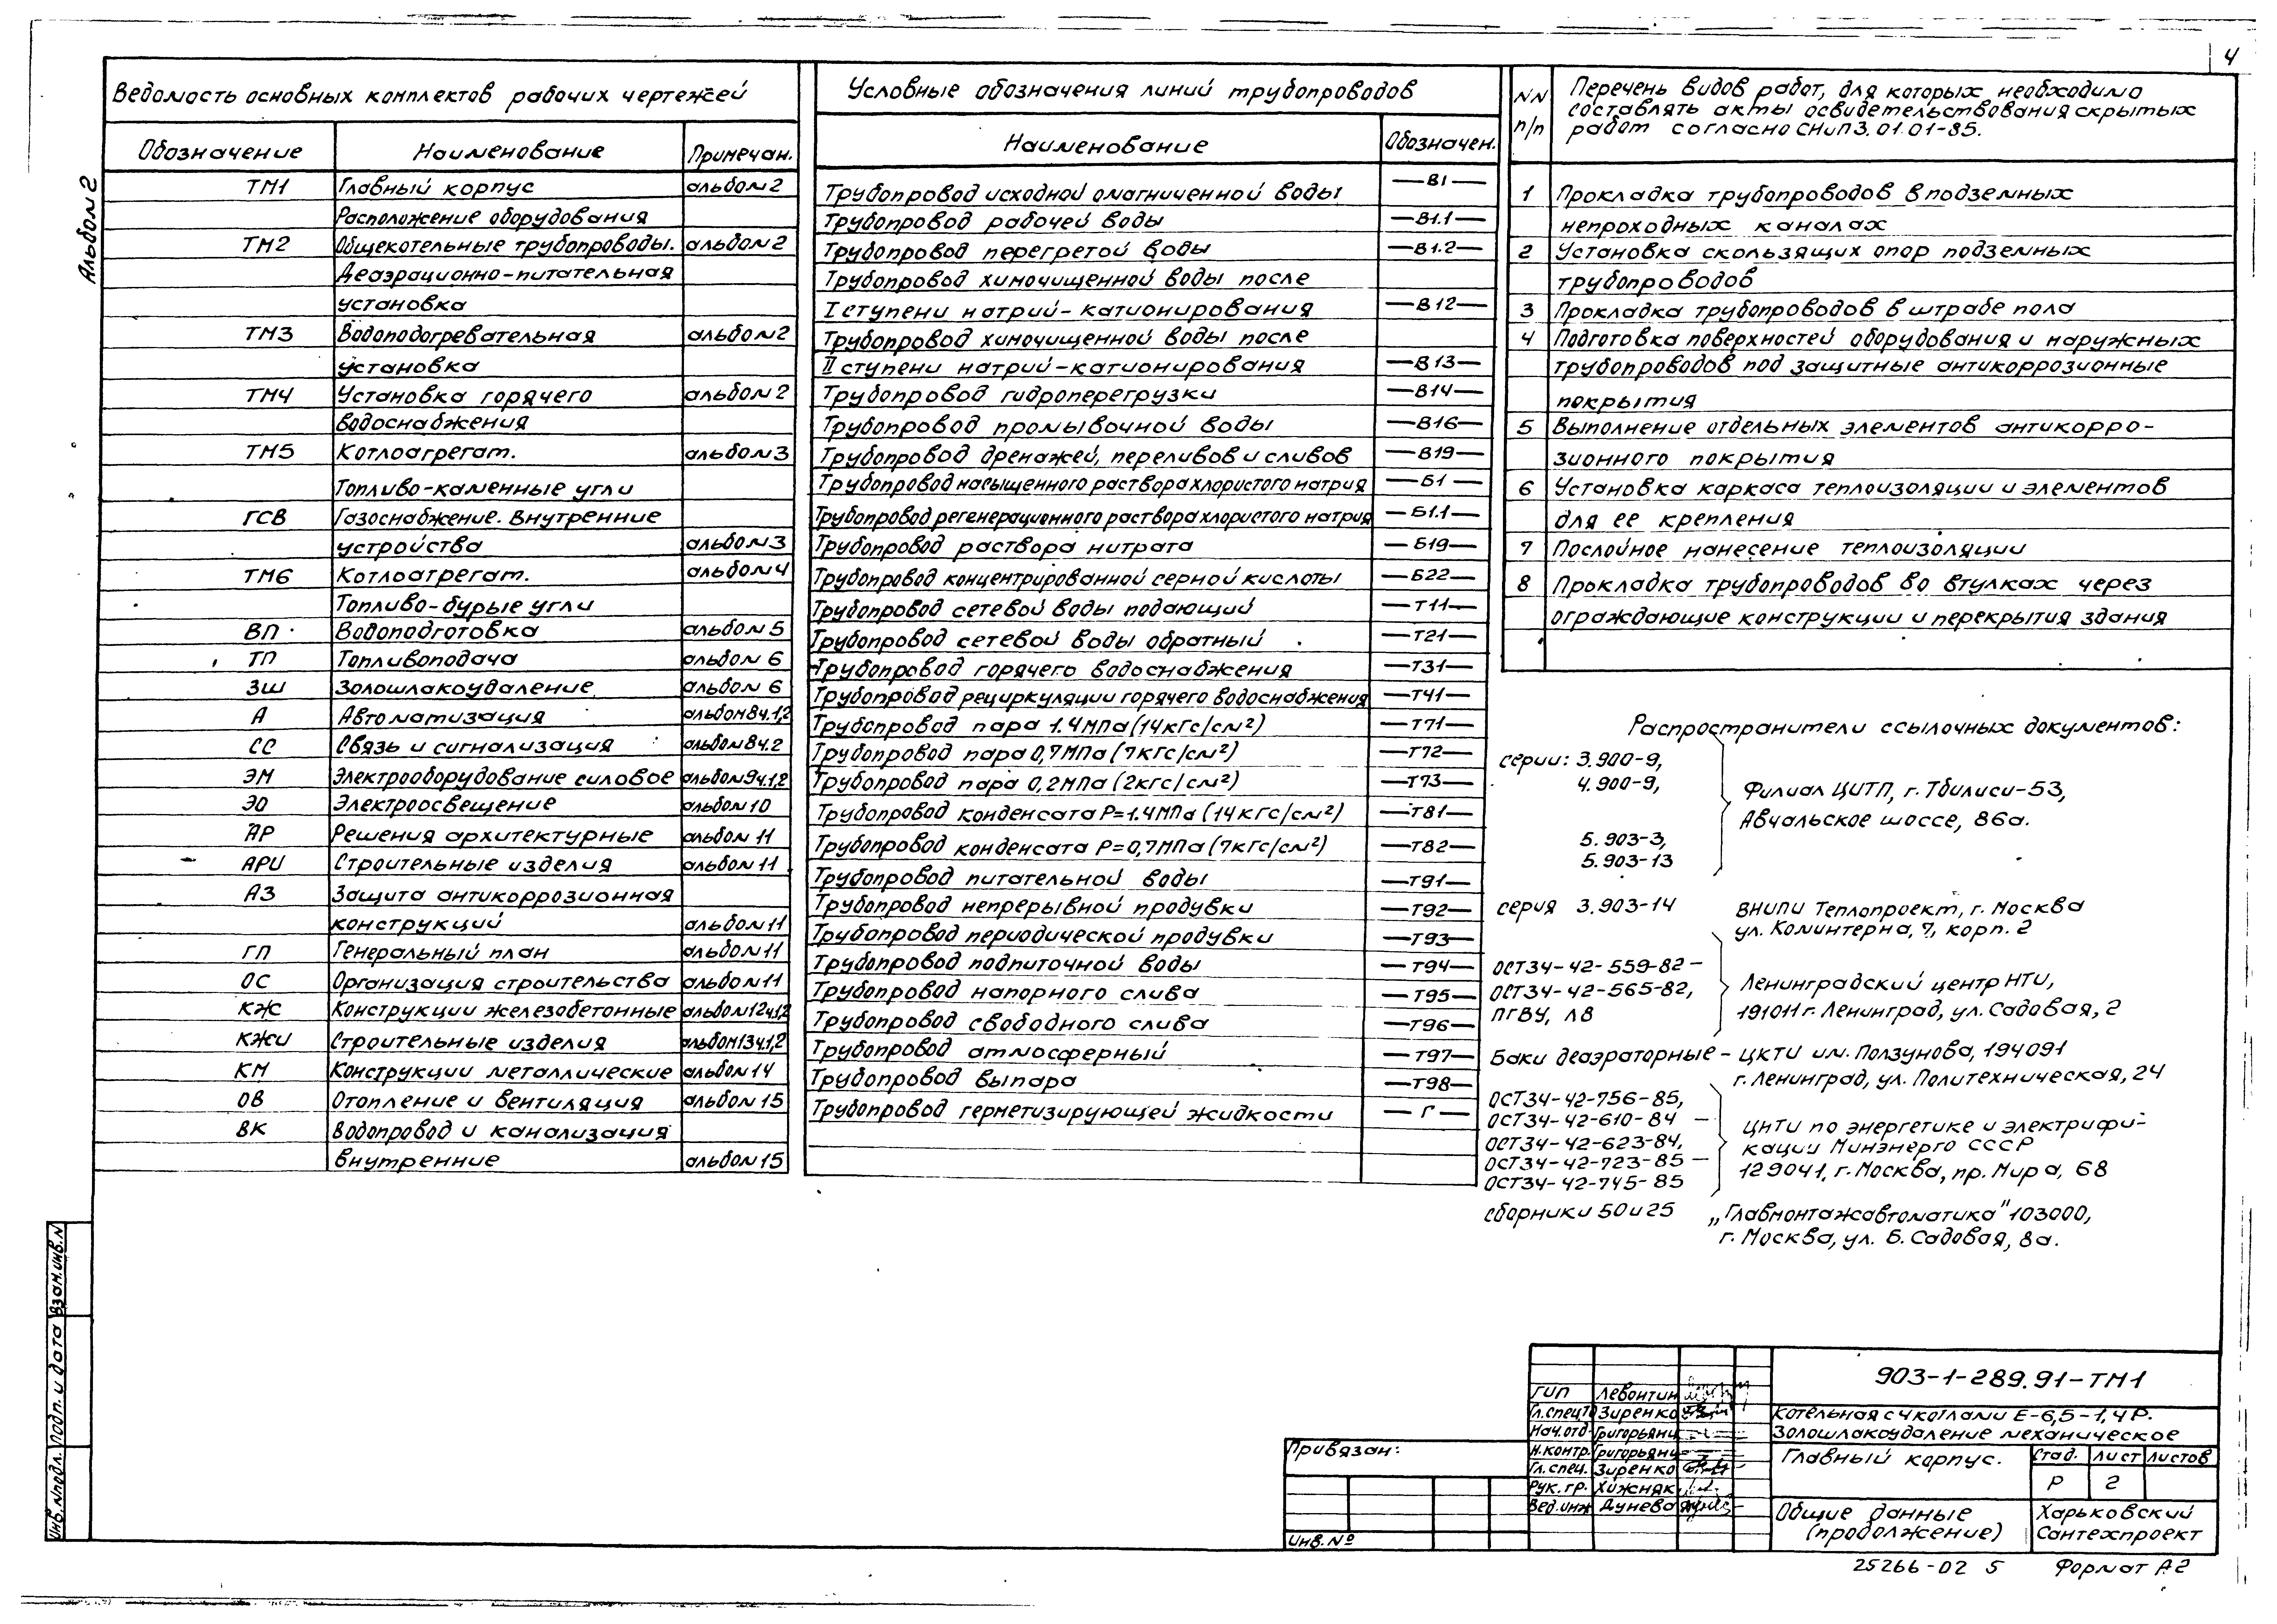 4
Альбом 2
Ведомость основных комплектов рабочих чертежей
Обозначение Наименование Примечан.
ТМ1 Главный корпус альбом 2
Расположение оборудования
ТМ2 Общекотельные трубопроводы. альбом 2
Деаэрационно-питательная
установка
ТМ3 Водоподогревательная альбом 2
установка
ТМ4 Установка горячего альбом 2
водоснабжения
ТМ5 Котлоагрегат. альбом 3
Топливо-каменные угли
ГСВ Газоснабжение. Внутренние
устройства альбом 3
ТМ6 Котлоагрегат. альбом 4
Топливо-бурые угли
ВП Водоподготовка альбом 5
ТП Топливоподача альбом 6
ЗШ Золошлакоудаление альбом 6
А Автоматизация альбом 8ч.1,2
СС Связь и сигнализация альбом 8ч.2
ЭМ Электрооборудование силовое альбом 9ч.1,2
ЭО Электроосвещение альбом 10
АР Решения архитектурные альбом 11
АРИ Строительные изделия альбом 11
АЗ Защита антикоррозионная
конструкций альбом 11
ГП Генеральный план альбом 11
ОС Организация строительства альбом 11
КЖ Конструкции железобетонные альбом 12ч.1,2
КЖИ Строительные изделия альбом 13ч.1,2
КМ Конструкции металлические альбом 14
ОВ Отопление и вентиляция альбом 15
ВК Водопровод и канализация
внутренние альбом 15
Условные обозначения линий трубопроводов
Наименование Обозначен.
Трубопровод исходной омагниченной воды —В1—
Трубопровод рабочей воды —В1.1—
Трубопровод перегретой воды —В1.2—
Трубопровод химочищенной воды после
I ступени натрий-катионирования —В12—
Трубопровод химочищенной воды после
II ступени натрий-катионирования —В13—
Трубопровод гидроперегрузки —В14—
Трубопровод промывочной воды —В16—
Трубопровод дренажей, переливов и сливов —В19—
Трубопровод насыщенного раствора хлористого натрия —Б1—
Трубопровод регенерационного раствора хлористого натрия —Б1.1—
Трубопровод раствора нитрата —Б19—
Трубопровод концентрированной серной кислоты —Б22—
Трубопровод сетевой воды подающий —Т11—
Трубопровод сетевой воды обратный —Т21—
Трубопровод горячего водоснабжения —Т31—
Трубопровод рециркуляции горячего водоснабжения —Т41—
Трубопровод пара 1.4МПа (14кгс/см²) —Т71—
Трубопровод пара 0,7МПа (7кгс/см²) —Т72—
Трубопровод пара 0,2МПа (2кгс/см²) —Т73—
Трубопровод конденсата Р=1.4МПа (14кгс/см²) —Т81—
Трубопровод конденсата Р=0,7МПа (7кгс/см²) —Т82—
Трубопровод питательной воды —Т91—
Трубопровод непрерывной продувки —Т92—
Трубопровод периодической продувки —Т93—
Трубопровод подпиточной воды —Т94—
Трубопровод напорного слива —Т95—
Трубопровод свободного слива —Т96—
Трубопровод атмосферный —Т97—
Трубопровод выпара —Т98—
Трубопровод герметизирующей жидкости —Г—
NN п/п
Перечень видов работ, для которых необходимо
составлять акты освидетельствования скрытых
работ согласно СНиП 3.01.01-85.
1 Прокладка трубопроводов в подземных
непроходных каналах
2 Установка скользящих опор подземных
трубопроводов
3 Прокладка трубопроводов в штрабе пола
4 Подготовка поверхностей оборудования и наружных
трубопроводов под защитные антикоррозионные
покрытия
5 Выполнение отдельных элементов антикорро-
зионного покрытия
6 Установка каркаса теплоизоляции и элементов
для ее крепления
7 Послойное нанесение теплоизоляции
8 Прокладка трубопроводов во втулках через
ограждающие конструкции и перекрытия здания
Распространители ссылочных документов:
серии: 3.900-9,
4.900-9,
5.903-3,
5.903-13
Филиал ЦИТП, г. Тбилиси-53,
Авчальское шоссе, 86а.
серия 3.903-14 ВНИПИ Теплопроект, г. Москва
ул. Коминтерна, 7, корп. 2
ОСТ34-42-559-82 —
ОСТ34-42-565-82,
ПГВУ, ЛВ
Ленинградский центр НТИ,
191011 г. Ленинград, ул. Садовая, 2
Баки деаэраторные – ЦКТИ им. Ползунова, 194091
г. Ленинград, ул. Политехническая, 24
ОСТ34-42-756-85,
ОСТ34-42-610-84 —
ОСТ34-42-623-84,
ОСТ34-42-723-85 —
ОСТ34-42-745-85
ЦНТИ по энергетике и электрифи-
кации Минэнерго СССР
129041, г. Москва, пр. Мира, 68
сборники 50 и 25 „Главмонтажавтоматика" 103000,
г. Москва, ул. Б. Садовая, 8а.
Инв. N подл. Подп. и дата Взам. инв. N
Привязан:
Инв. №
ГИП Левонтин
Гл. спец. Зиренко
Нач. отд. Григорьянц
Н. контр. Григорьянц
Гл. спец. Зиренко
Рук. гр. Хижняк
Вед. инж Дунева
903-1-289.91-ТМ1
Котельная с 4 котлами Е-6,5-1,4Р.
Золошлакоудаление механическое
Главный корпус.
Стад. Лист Листов
Р 2
Общие данные
(продолжение)
Харьковский
Сантехпроект
25266-02 5 Формат А2